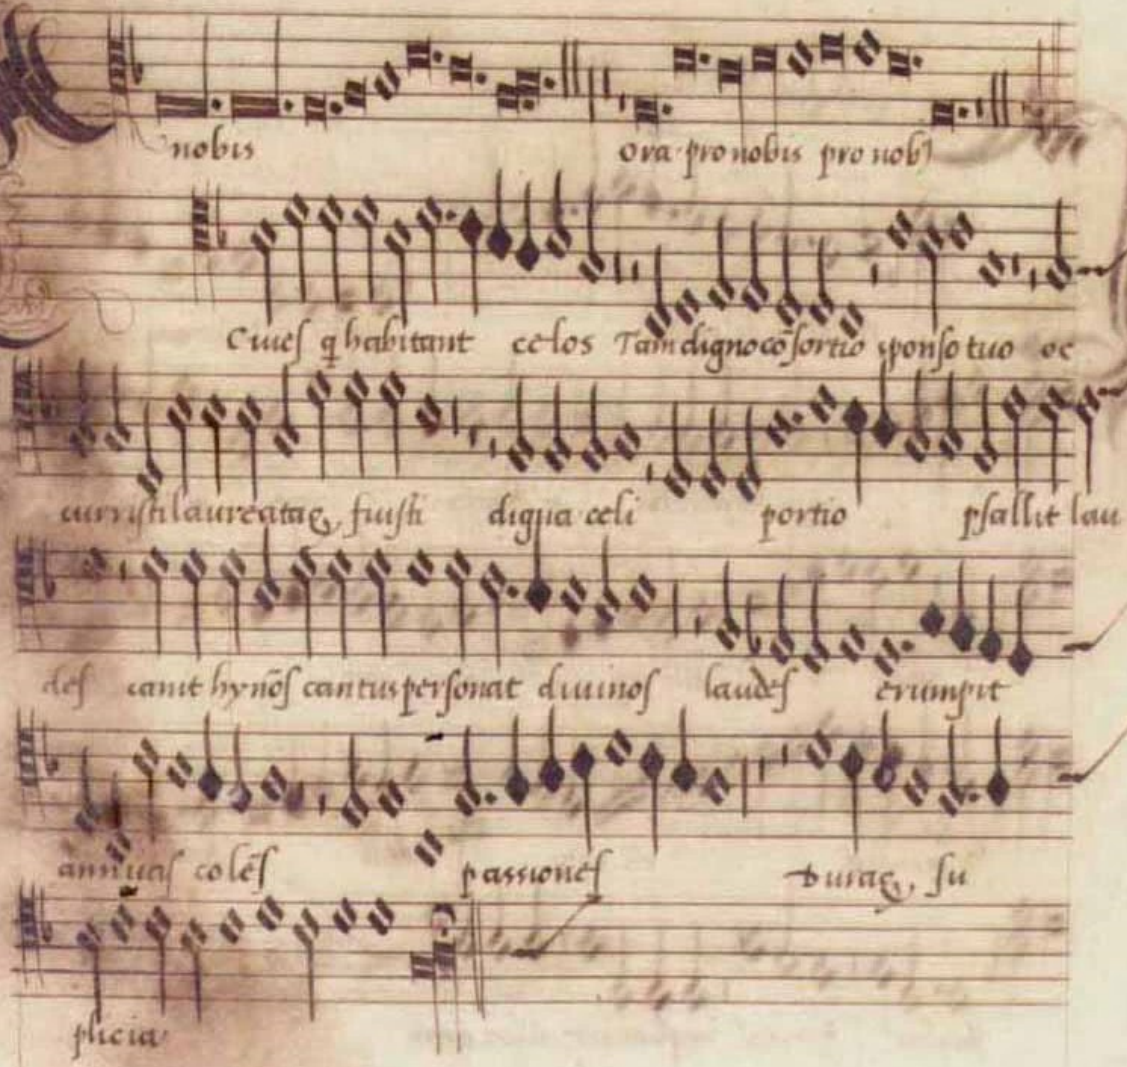 nobis ora pro nobis pro nob
Ciueſ q habitant celos Tam digno cōſortio sponſo tuo oc
curriſti laureataq, fuiſti digna celi portio pſallit lau
deſ canit hynōſ cantus perſonat diuinoſ laudeſ erumpit
annuaſ coleſ passioneſ Duraq, ſu
plicia